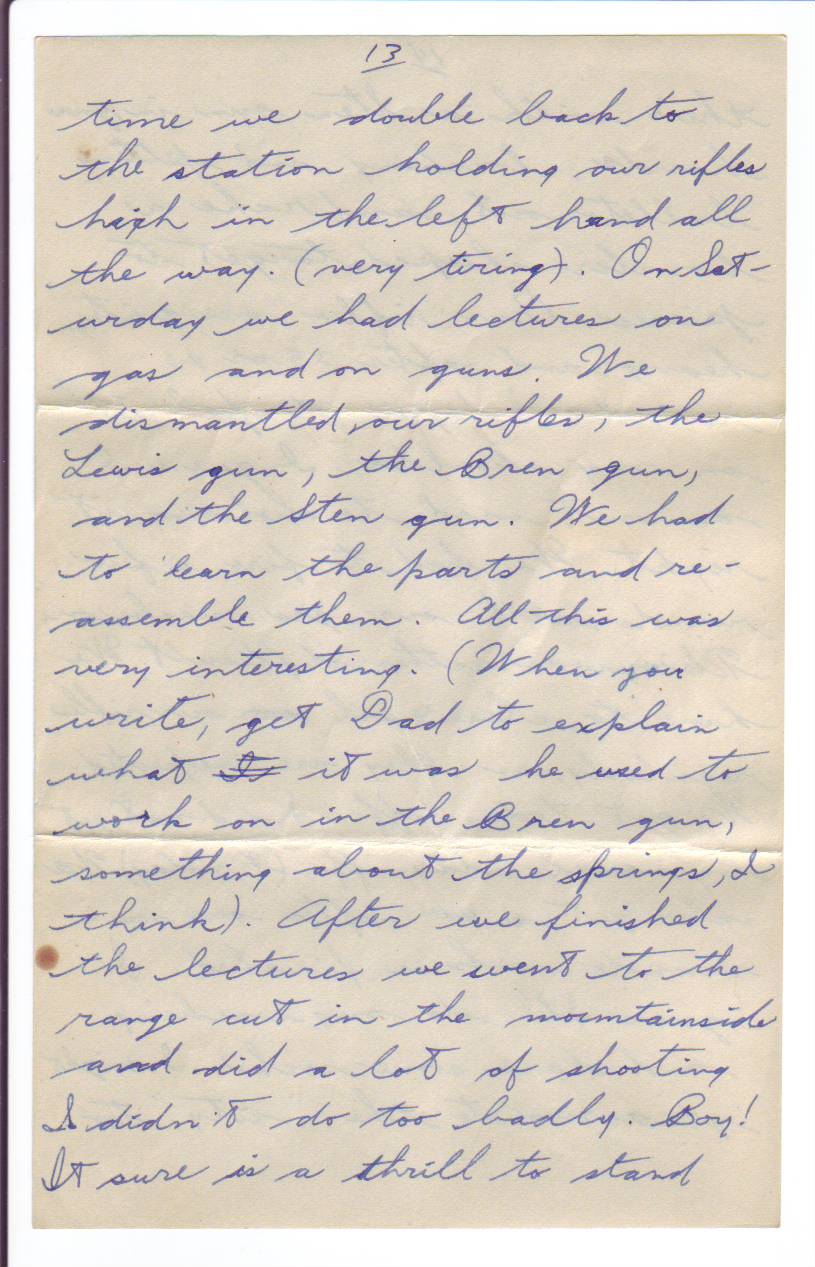 13
time we double back to
the station holding our rifles
high in the left hand all
the way. (very tiring). On Sat-
urday we had lectures on
gas and on guns. We
dismantled, our rifles, the
Lewis gun, the Bren gun,
and the Sten gun. We had
to learn the parts and re-
assemble them. All this was
very interesting. (When you
write, get Dad to explain
what it was he used to
work on in the Bren gun,
something about the springs, I
think). After we finished
the lectures we went to the
range cut in the mountainside
and did a lot of shooting
I didn't do too badly. Boy!
It sure is a thrill to stand